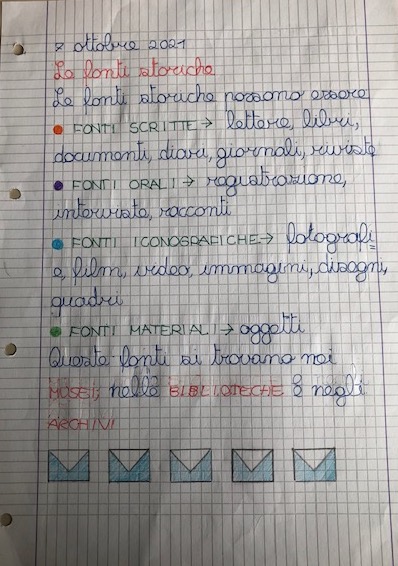 7 ottobre 2021
Le fonti storiche
Le fonti storiche possono essere
• FONTI SCRITTE → lettere, libri,
documenti, diari, giornali, riviste
• FONTI ORALI → registrazione,
interviste, racconti
• FONTI ICONOGRAFICHE → fotografi
e, film, video, immagini, disegni,
quadri
• FONTI MATERIALI → oggetti
Queste fonti si trovano nei
MUSEI, nelle BIBLIOTECHE e negli
ARCHIVI